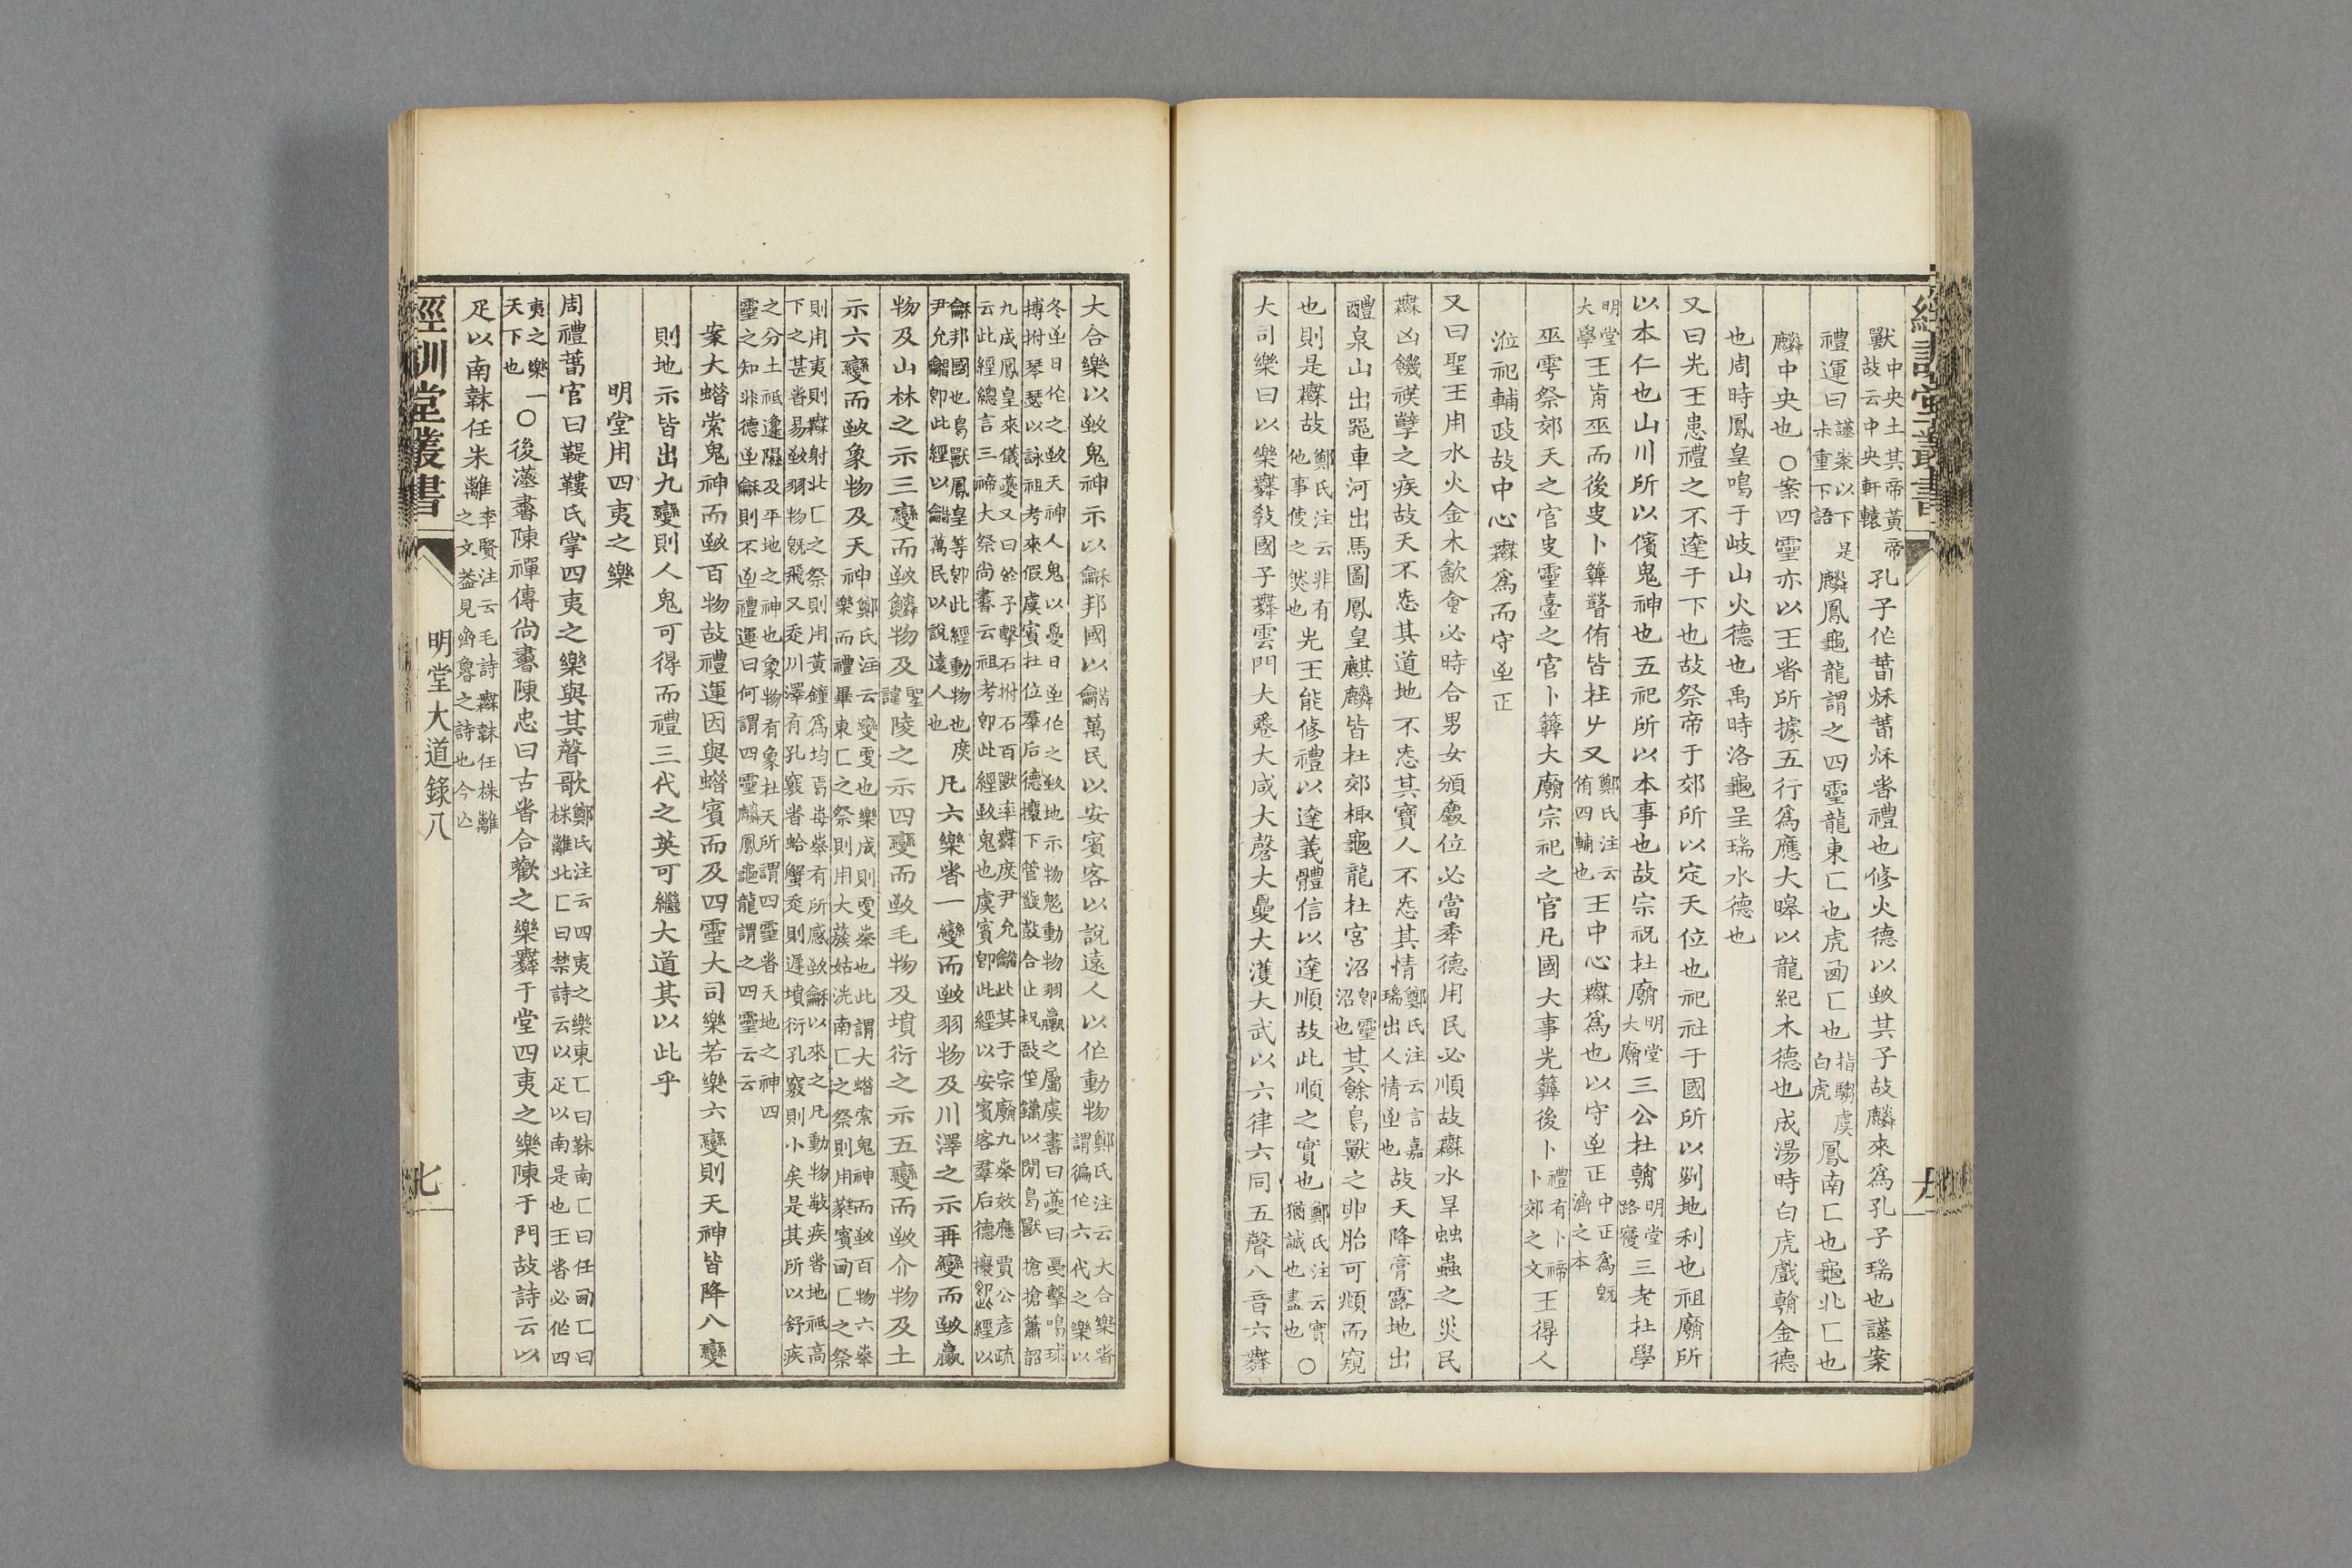 獸中央土其帝黃帝故云中央軒轅孔子作萅秌萅秌者禮也修火德以致其子故麟來爲孔子瑞也謹案
禮運曰謹案以下是未重下語麟鳳龜龍謂之四靈龍東匚也虎𠧧匚也指騶虞白虎鳳南匚也龜北匚也
麟中央也○案四靈亦以王者所據五行爲應大暤以龍紀木德也成湯時白虎戲朝金德
也周時鳳皇鳴于岐山火德也禹時洛龜呈瑞水德也
又曰先王患禮之不達于下也故祭帝于郊所以定天位也祀社于國所以列地利也祖廟所
以本仁也山川所以儐鬼神也五祀所以本事也故宗祝在廟明堂大廟三公在朝明堂路寢三老在學
明堂大學王前巫而後史卜筮瞽侑皆在ナ又鄭氏注云侑四輔也王中心無爲也以守至正中正爲旣濟之本
巫雩祭郊天之官史靈臺之官卜筮大廟宗祀之官凡國大事先筮後卜禮有卜禘卜郊之文王得人
涖祀輔政故中心無爲而守至正
又曰聖王用水火金木飮食必時合男女頒爵位必當年德用民必順故無水旱蚰蟲之災民
無凶饑祅孽之疾故天不恡其道地不恡其寶人不恡其情鄭氏注云言嘉瑞出人情至也故天降膏露地出
醴泉山出器車河出馬圖鳳皇麒麟皆在郊棷龜龍在宮沼卽靈沼也其餘鳥獸之卵胎可頫而窺
也則是無故鄭氏注云非有他事使之然也先王能修禮以達義體信以達順故此順之實也鄭氏注云實猶誠也盡也○
大司樂曰以樂舞敎國子舞雲門大卷大咸大磬大夏大濩大武以六律六同五聲八音六舞
大合樂以致鬼神示以龢邦國以龤萬民以安賓客以說遠人以作動物鄭氏注云大合樂者謂徧作六代之樂以
冬至日作之致天神人鬼以夏日至作之致地示物鬽動物羽臝之屬虞書曰夔曰戞擊鳴球
搏拊琴瑟以詠祖考來假虞賓在位羣后德攘下管鼗鼓合止柷敔笙鏞以閒鳥獸搶搶簫韶
九成鳳皇來儀夔又曰於予擊石拊石百獸率舞庶尹允龤此其于宗廟九奏效應賈公彥疏
云此經總言三禘大祭尚書云祖考卽此經致鬼也虞賓卽此經以安賓客羣后德攘卽此經以
龢邦國也鳥獸鳳皇等卽此經動物也庶
尹允龤卽此經以龤萬民以說遠人也凡六樂者一變而致羽物及川澤之示再變而致臝
物及山林之示三變而致鱗物及聖諱陵之示四變而致毛物及墳衍之示五變而致介物及土
示六變而致象物及天神鄭氏注云變㪅也樂成則㪅奏也此謂大蜡索鬼神而致百物六奏
樂而禮畢東匚之祭則用大蔟姑洗南匚之祭則用蕤賓𠧧匚之祭
則用夷則無射北匚之祭則用黃鐘爲均焉每奏有所感致龢以來之凡動物敏疾者地祗高
下之甚者易致羽物旣飛又走川澤有孔竅者蛤蟹走則遲墳衍孔竅則小矣是其所以舒疾
之分土祗邊隰及平地之神也象物有象在天所謂四靈者天地之神四
靈之知非德至龢則不至禮運曰何謂四靈麟鳳龜龍謂之四靈云云
案大蜡索鬼神而致百物故禮運因與蜡賓而及四靈大司樂若樂六變則天神皆降八變
則地示皆出九變則人鬼可得而禮三代之英可繼大道其以此乎
明堂用四夷之樂
周禮萅官曰鞮鞻氏掌四夷之樂與其聲歌鄭氏注云四夷之樂東匚曰韎南匚曰任𠧧匚曰
株離北匚曰禁詩云以疋以南是也王者必作四
夷之樂一天下也○後漢書陳禪傳尚書陳忠曰古者合歡之樂舞于堂四夷之樂陳于門故詩云以
疋以南韎任朱離李賢注云毛詩無韎任株離之文葢見齊魯之詩也今亡
經訓堂叢書
明堂大道錄八
七